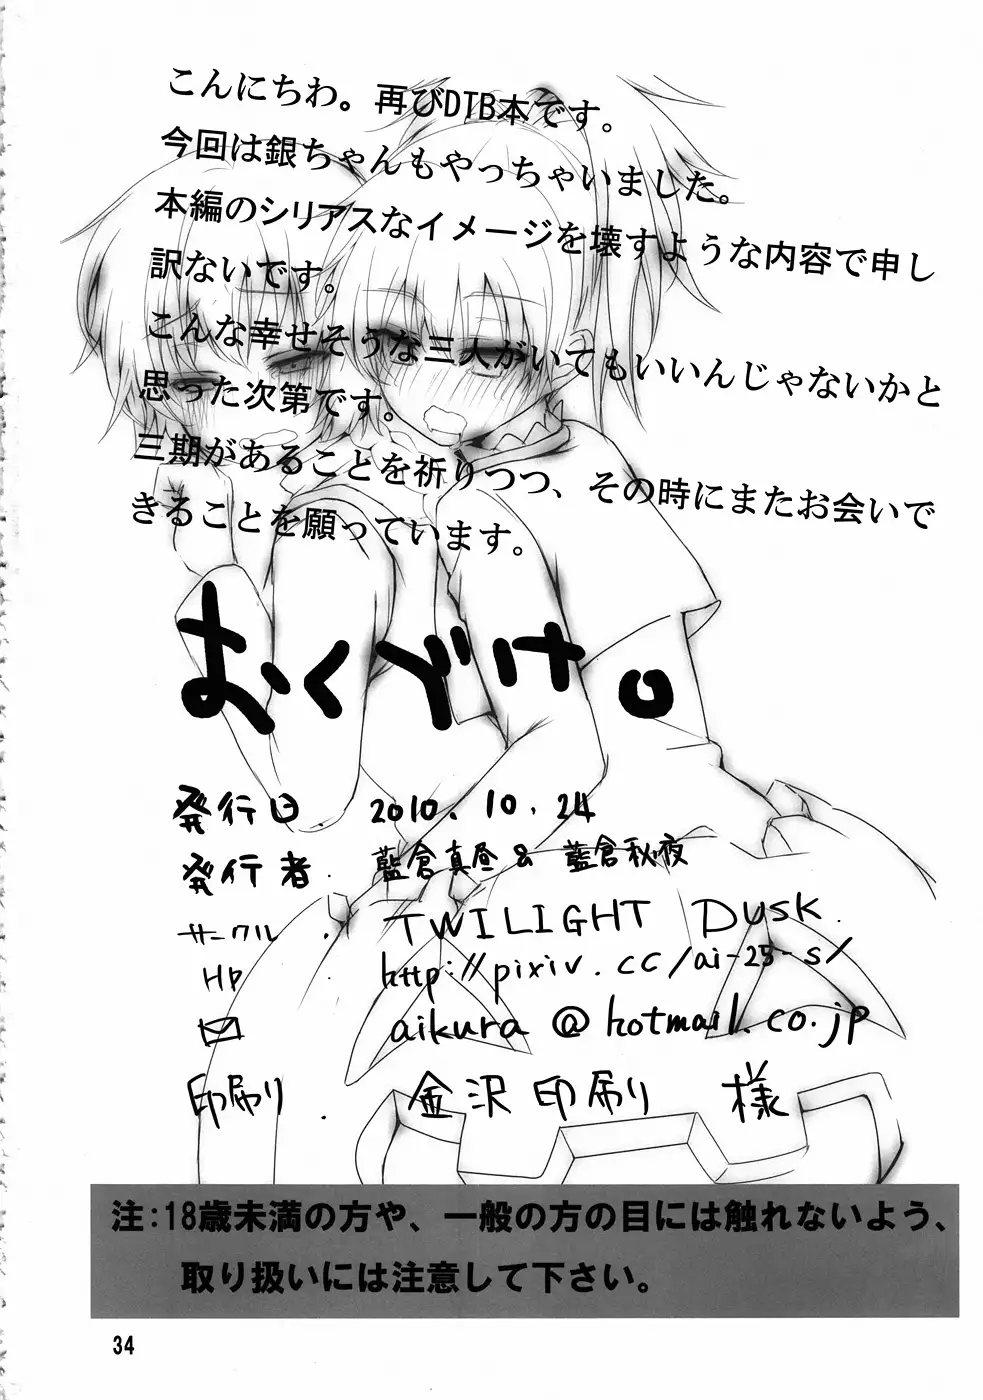 こんにちわ。再びDTB本です。
今回は銀ちゃんもやっちゃいました。
本編のシリアスなイメージを壊すような内容で申し
訳ないです。
こんな幸せそうな三人がいてもいいんじゃないかと
思った次第です。
三期があることを祈りつつ、その時にまたお会いで
きることを願っています。
おくづけ。
発行日 2010.10.24
発行者. 藍倉真昼&藍倉秋夜
サークル. TWILIGHT DUSK.
HP http://pixiv.cc/ai-25-s/
aikura@hotmail.co.jp
印刷. 金沢印刷 様
注:18歳未満の方や、一般の方の目には触れないよう、
取り扱いには注意して下さい。
34